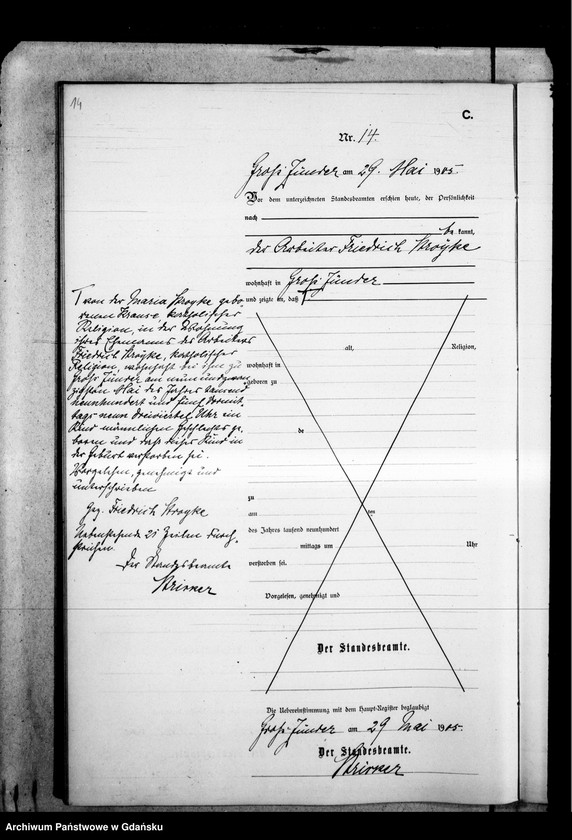 14
C.
Nr. 14.
Groß Zünder am 29. Mai 1905.
Vor dem unterzeichneten Standesbeamten erschien heute, der Persönlichkeit
nach
be kannt,
der Arbeiter Friedrich Stroyke
wohnhaft in Groß Zünder
und zeigte an, daß
von der Maria Stroyke gebo-
renen Krause katholischer
Religion, in der Wohnung
ihres Ehemanns des Arbeiters
Friedrich Stroyke, katholischer
Religion, wohnhaft bei ihm zu
Groß Zünder am neunundzwan-
zigsten Mai des Jahres tausend
neunhundert und fünf Vormit-
tags neun dreiviertel Uhr ein
Kind männlichen Geschlechts ge-
boren und daß dieses Kind in
der Geburt verstorben sei.
Vorgelesen, genehmigt und
unterschrieben
gez. Friedrich Stroyke
Nebenstehende 21 Zeilen durch-
strichen.
Der Standesbeamte
alt, Religion,
wohnhaft in
geboren zu
de
zu
am ten
des Jahres tausend neunhundert
mittags um Uhr
verstorben sei.
Vorgelesen, genehmigt und
Der Standesbeamte.
Die Uebereinstimmung mit dem Haupt-Register beglaubigt
Groß Zünder am 29 Mai 1905.
Der Standesbeamte.
Archiwum Państwowe w Gdańsku